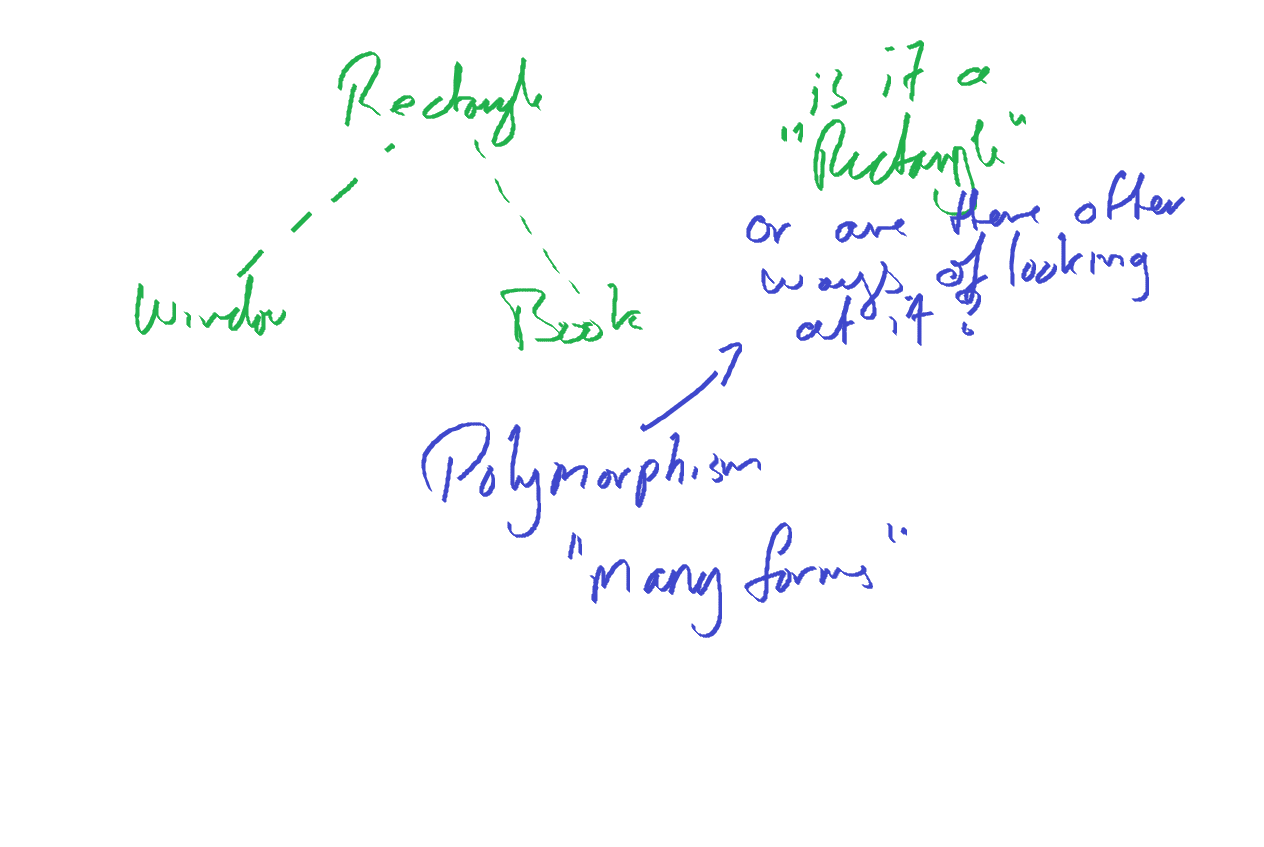 Rectangle
Window
Book
is it a
"Rectangle"
or are there other
ways of looking
at it?
Polymorphism
"many forms"